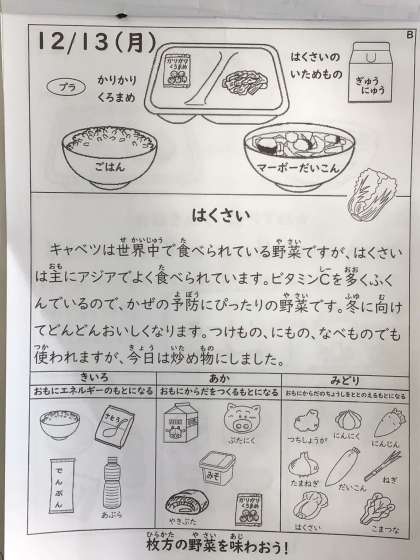 12/13(月)
B
プラ
かりかり
くろまめ
かりかり
くろまめ
はくさいの
いためもの
ぎゅう
にゅう
ごはん
マーボーだいこん
はくさい
キャベツは世界中で食べられている野菜ですが、はくさい
は主にアジアでよく食べられています。ビタミンCを多くふく
んでいるので、かぜの予防にぴったりの野菜です。冬に向け
てどんどんおいしくなります。つけもの、にもの、なべものでも
使われますが、今日は炒め物にしました。
きいろ
おもにエネルギーのもとになる
さとう
でんぷん
あぶら
あか
おもにからだをつくるもとになる
ぶたにく
みそ
やきぶた
かりかり
くろまめ
みどり
おもにからだのちょうしをととのえるもとになる
つちしょうが
にんにく
にんじん
たまねぎ
だいこん
ねぎ
はくさい
こまつな
枚方の野菜を味わおう!